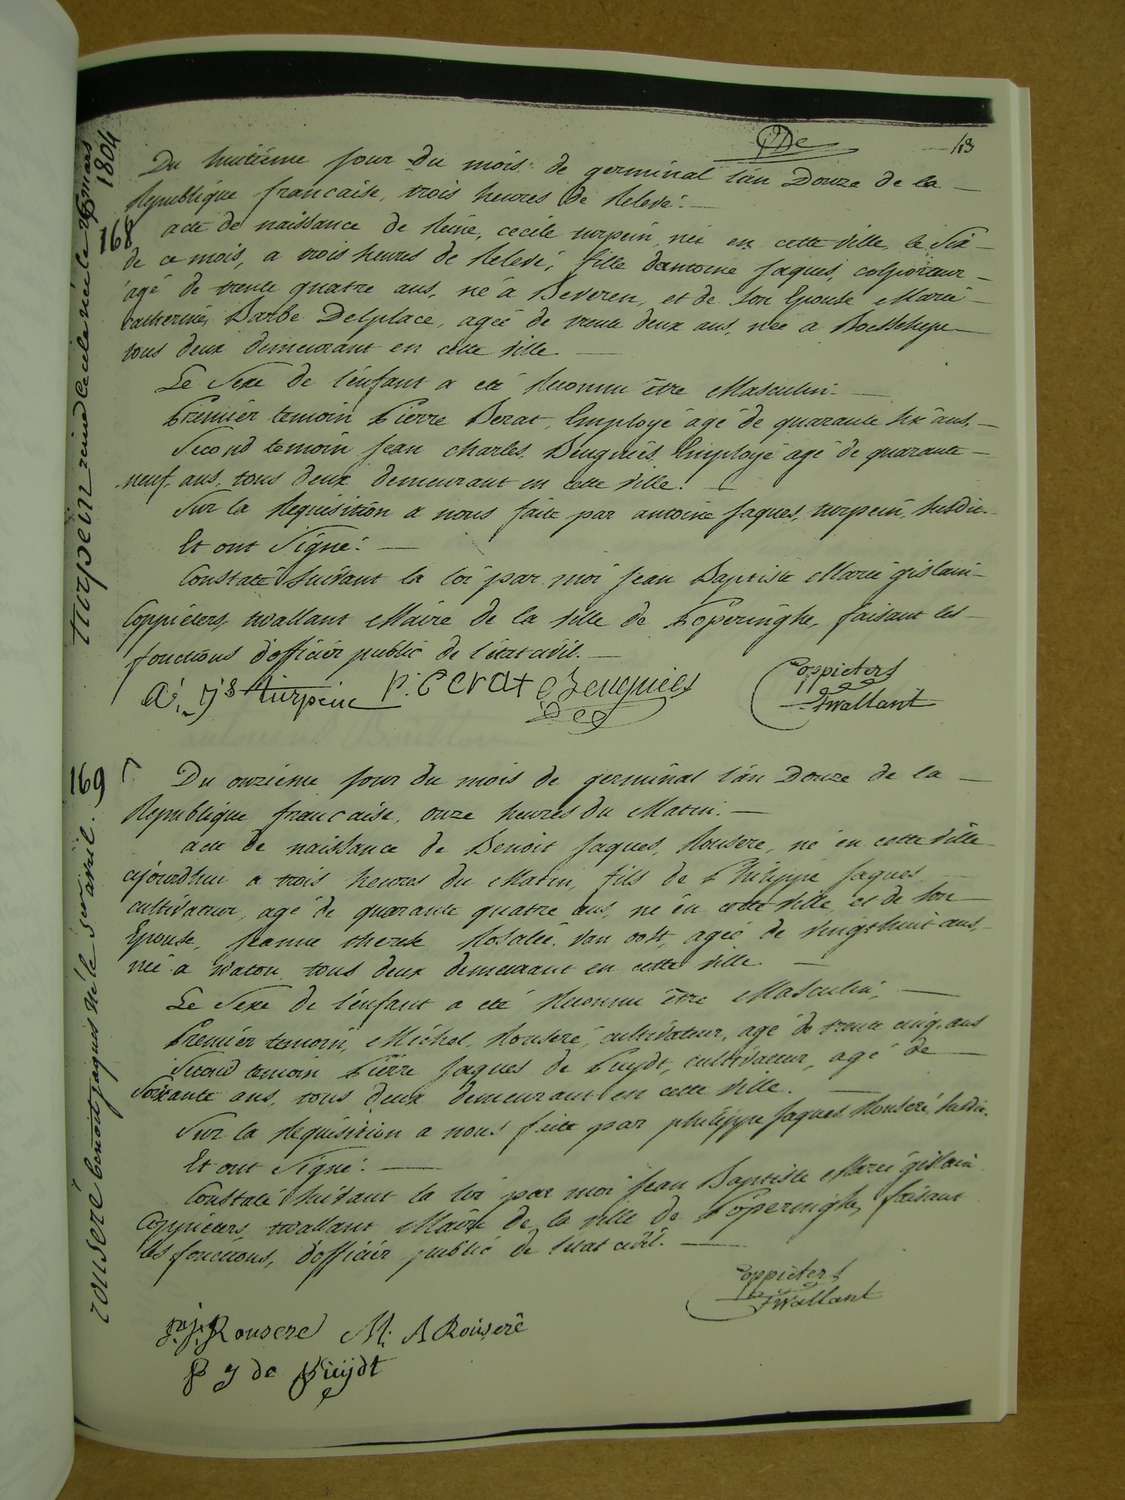 De
43
Du huitieme jour du mois de germinal l'an Douze de la
Republique francaise, trois heures de Relevé.
168
acte de naissance de Reine, cecile turpein, née en cette ville le Six
de ce mois, a trois heures de Relevé, fille d'antoine jaques, colporteur
agé de trente quatre ans, né a Beveren, et de Son Epouse Marie
catherine, Barbe Delplace, agée de trente deux ans, née a Boesschepe
tous deux demeurant en cette ville
Le Sexe de l'enfant a eté Reconnu être Masculin.
Premier temoin Pierre Berat, Employé agé de quarante Six ans,
Second temoin jean charles, Beugniés, Employé agé de quarante
neuf ans, tous deux demeurant en cette ville.
Sur la Requisition a nous faite par antoine jaques, turpein, Susdit.
Et ont Signé.
Constaté Suivant la loi par moi jean Baptiste Marie gislain
Coppieters, wallant Maire de la ville de Poperinghe, faisant les
fonctions d'officier public de l'état civil.
a. js turpein P: Berat Beugnies
Coppieters
Twallant
1804
turpein reine Cecile née le
169
Du onzieme jour du mois de germinal l'an Douze de la
Republique francaise, onze heures du Matin.
acte de naissance de Benoit jaques, Rouseré, né en cette ville
ajourdhui a trois heures du Matin, fils de Philippe jaques
cultivateur, agé de quarante quatre ans, né en cette ville, et de Son
Epouse, jeanne therese Rosalie, Van oost, agée de vingt huit ans,
née a watou tous deux demeurant en cette ville.
Le Sexe de l'enfant a eté Reconnu être Masculin,
Premier temoin, Michel, Rouseré, cultivateur, agé de trente cinq ans
Second temoin Pierre jaques de Puydt, cultivateur, agé de
Soixante ans, tous deux demeurant en cette ville.
Sur la Requisition a nous faite par philippe jaques Rouseré Susdit.
Et ont Signé.
Constaté Suivant la loi par moi jean Baptiste Marie gislain
Coppieters, wallant Maire de la ville de Poperinghe, faisant
les fonctions, d'officier public de l'etat civil.
Coppieters
Twallant
Rousere M: A Rouseré
P J de Puijdt
rouseré benoit jaques né le avril.